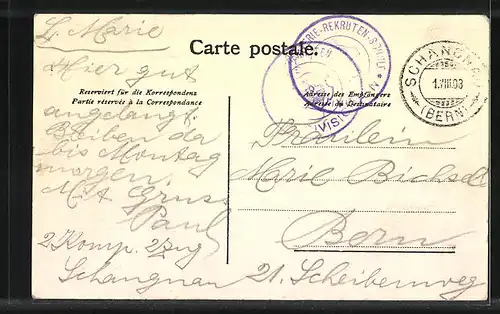 L. Marie
Carte postale.
Hier gut
Reserviert für die Korrespondenz
Partie réservée à la Correspondance
Adresse des Empfängers
Adresse du Destinataire
INFANTERIE-REKRUTEN-SCHULE
SCHANGNAU
1.VIII.08
(BERN)
angelangt.
Bleiben da
bis Montag
morgen.
Mit Gruss
Paul
2 Komp. 2 Zug
Schangnau
Fräulein
Marie Bichsel
Bern
21. Scheibenweg